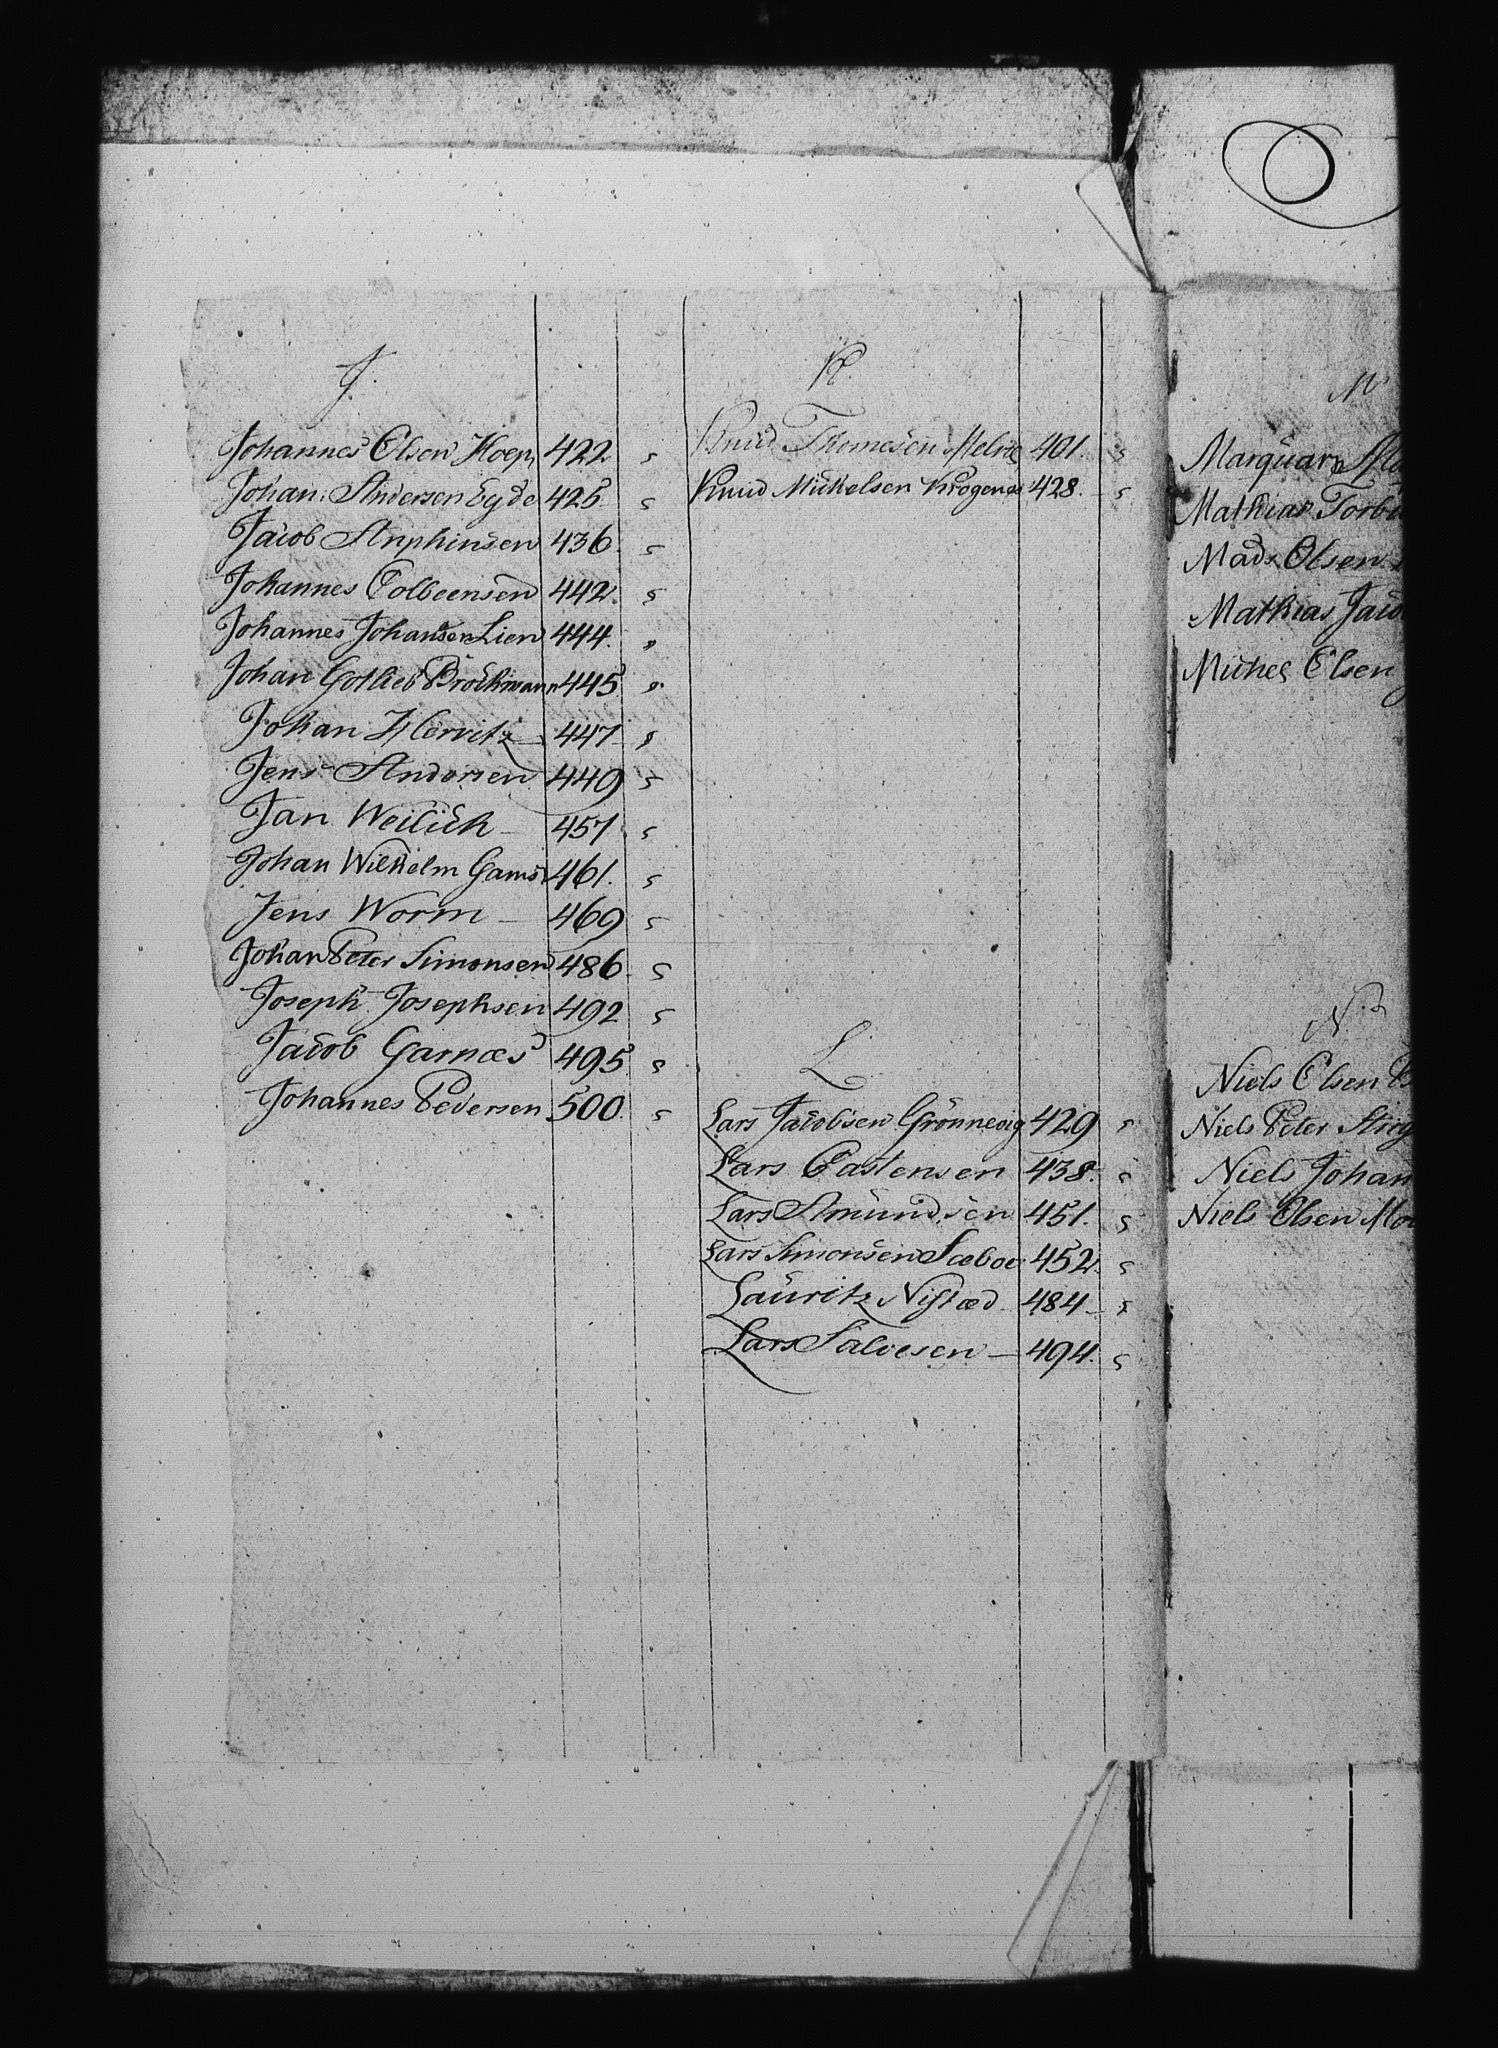 J.
Johannes Olsen Hoep 422
Johan Andersen Eyde 425
Jacob Stephensen 436
Johannes Colbeensen 442
Johannes Johansen Lien 444.
Johan Gotlieb Bröckmann 445
Johan Hervitz 447
Jens Andersen 449
Jan Weilich 457
Johan Wilhelm Gams 461.
Jens Worm 469
Johan Peter Simonsen 486
Joseph Josephsen 492
Jacob Garnæs 495
Johannes Pedersen 500.
K.
Knud Thomesen 401.
Knud Mickelsen Krogenæs 428.
L
Lars Jacobsen Grönnevig 429
Lars Castensen 438.
Lars Amundsen 451.
Lars Simonsen Sæboe 452.
Lauritz Nistæd 484
Lars Salvesen 494.
M
Marquar
Mathias Torb
Mads Olsen
Mathias Jaco
Michel Olsen
N.
Niels Olsen
Niels Peter
Niels Johan
Niels Olsen Mo